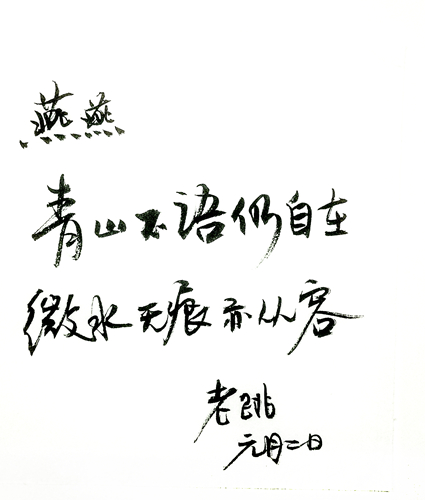 燕燕
青山不语仍自在
微水无痕亦从容
老跳
元月二日